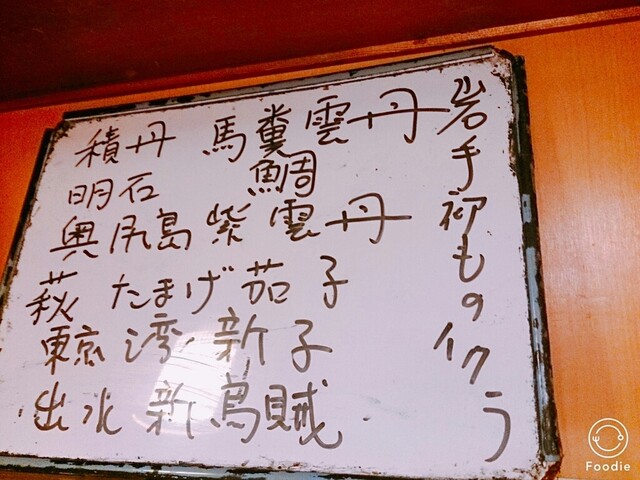 岩手初ものイクラ
積丹 馬糞雲丹
明石 鯛
奥尻島紫雲丹
萩 たまげ茄子
東京湾新子
出水新烏賊
Foodie